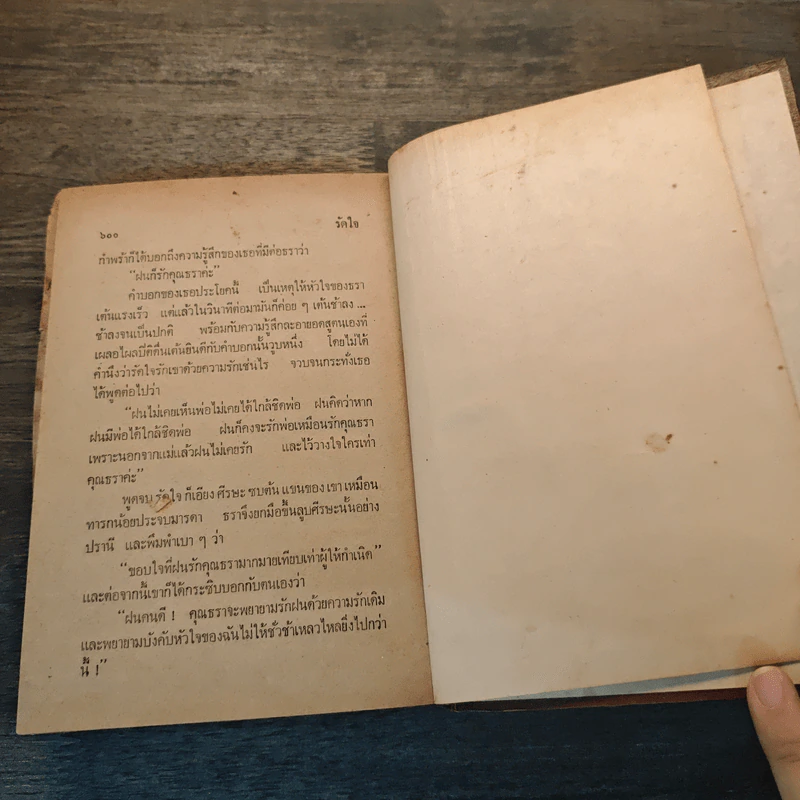 ๖๐๐ รัดใจ
กำพร้าก็ได้บอกถึงความรู้สึกของเธอที่มีต่อธราว่า
“ฝนก็รักคุณธราค่ะ”
คำบอกของเธอประโยคนี้ เป็นเหตุให้หัวใจของธรา
เต้นแรงเร็ว แต่แล้วในวินาทีต่อมามันก็ค่อย ๆ เต้นช้าลง ...
ช้าลงจนเป็นปกติ พร้อมกับความรู้สึกละอายอดสูตนเองที่
เผลอไผลปีติตื่นเต้นยินดีกับคำบอกนั้นวูบหนึ่ง โดยไม่ได้
คำนึงว่ารัดใจรักเขาด้วยความรักเช่นไร จวบจนกระทั่งเธอ
ได้พูดต่อไปว่า
“ฝนไม่เคยเห็นพ่อไม่เคยได้ใกล้ชิดพ่อ ฝนคิดว่าหาก
ฝนมีพ่อได้ใกล้ชิดพ่อ ฝนก็คงจะรักพ่อเหมือนรักคุณธรา
เพราะนอกจากแม่แล้วฝนไม่เคยรัก และไว้วางใจใครเท่า
คุณธราค่ะ”
พูดจบ รัดใจ ก็เอียง ศีรษะ ซบต้น แขนของ เขา เหมือน
ทารกน้อยประจบมารดา ธราจึงยกมือขึ้นลูบศีรษะนั้นอย่าง
ปรานี และพึมพำเบา ๆ ว่า
“ขอบใจที่ฝนรักคุณธรามากมายเทียบเท่าผู้ให้กำเนิด”
และต่อจากนี้เขาก็ได้กระซิบบอกกับตนเองว่า
“ฝนคนดี ! คุณธราจะพยายามรักฝนด้วยความรักเดิม
และพยายามบังคับหัวใจของฉันไม่ให้ชั่วช้าเหลวไหลยิ่งไปกว่า
นี้ !”